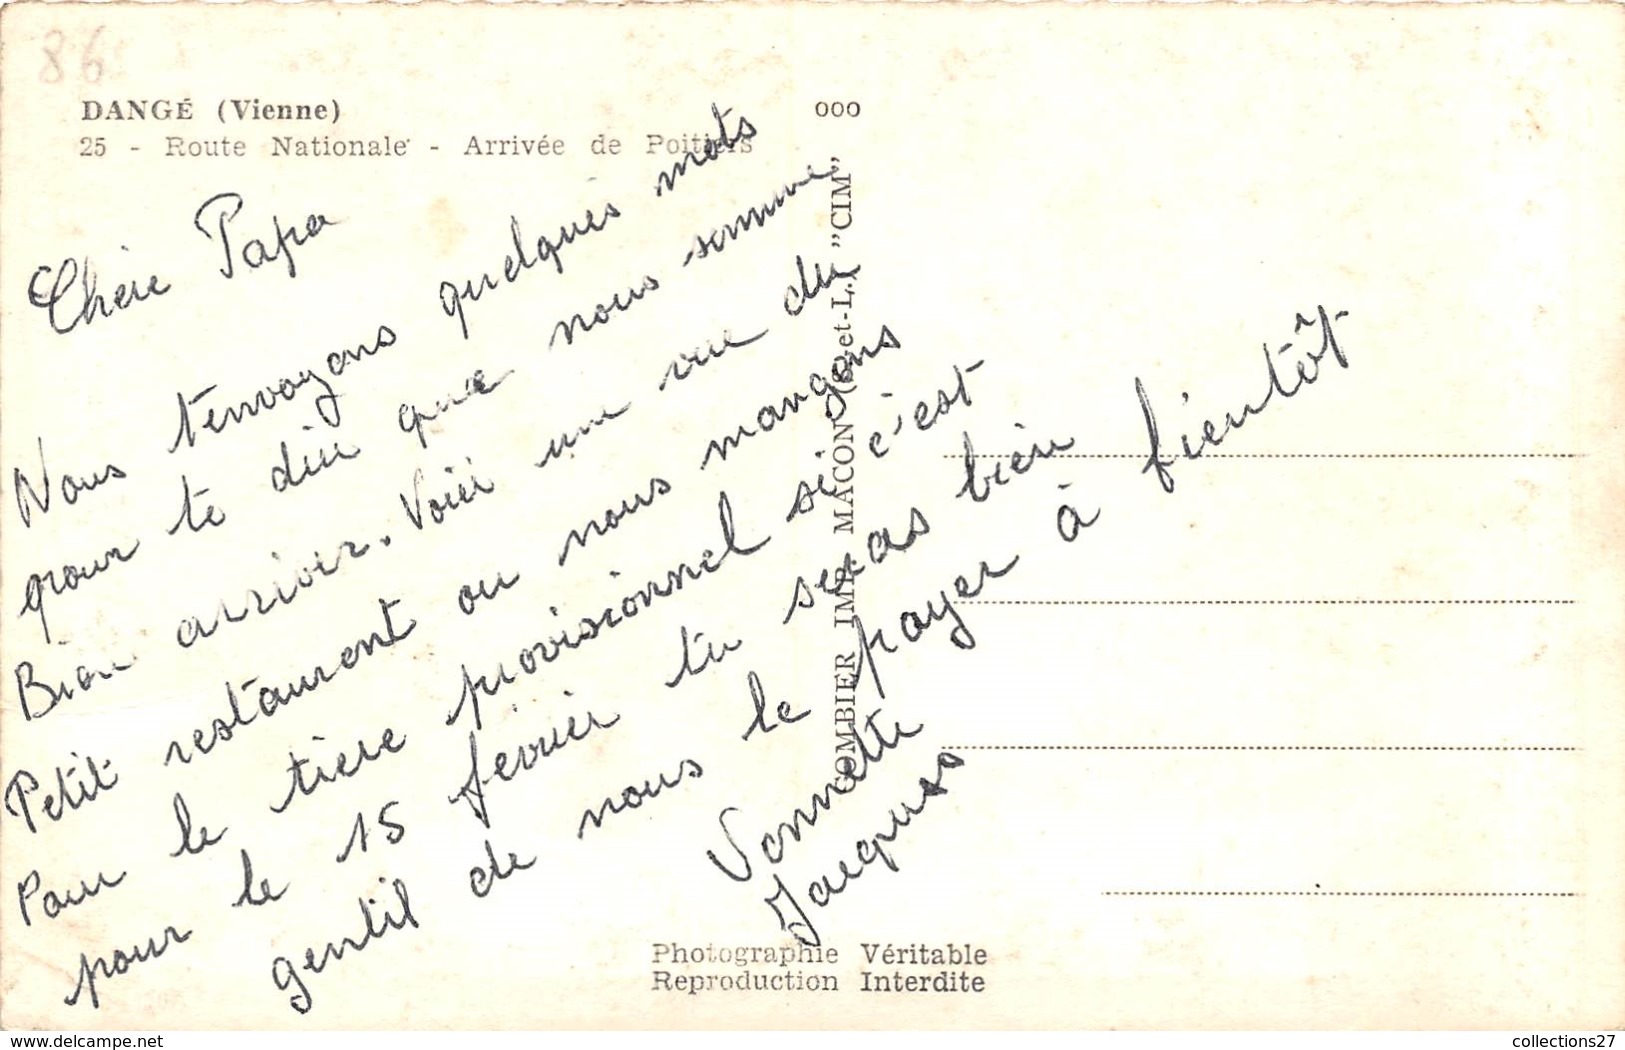 86
DANGÉ (Vienne)
25 - Route Nationale - Arrivée de Poitiers
000
Chère Papa
Nous t'envoyons quelques mots
pour te dire que nous somme
Bien arriver. Voici une vue du
Petit restaurent ou nous mangons
Pour le tiere provisionnel si c'est
pour le 15 février tu seras bien
gentil de nous le payer à bientôt
Vonnette
Jacques
COMBIER IMP. MACON (S.-et-L.) "CIM"
Photographie Véritable
Reproduction Interdite
www.delcampe.net
collections27